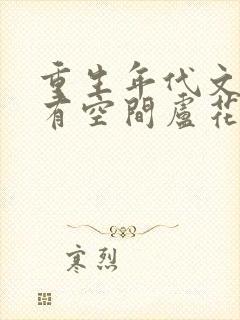 重生年代文
有空間盧花
寒烈